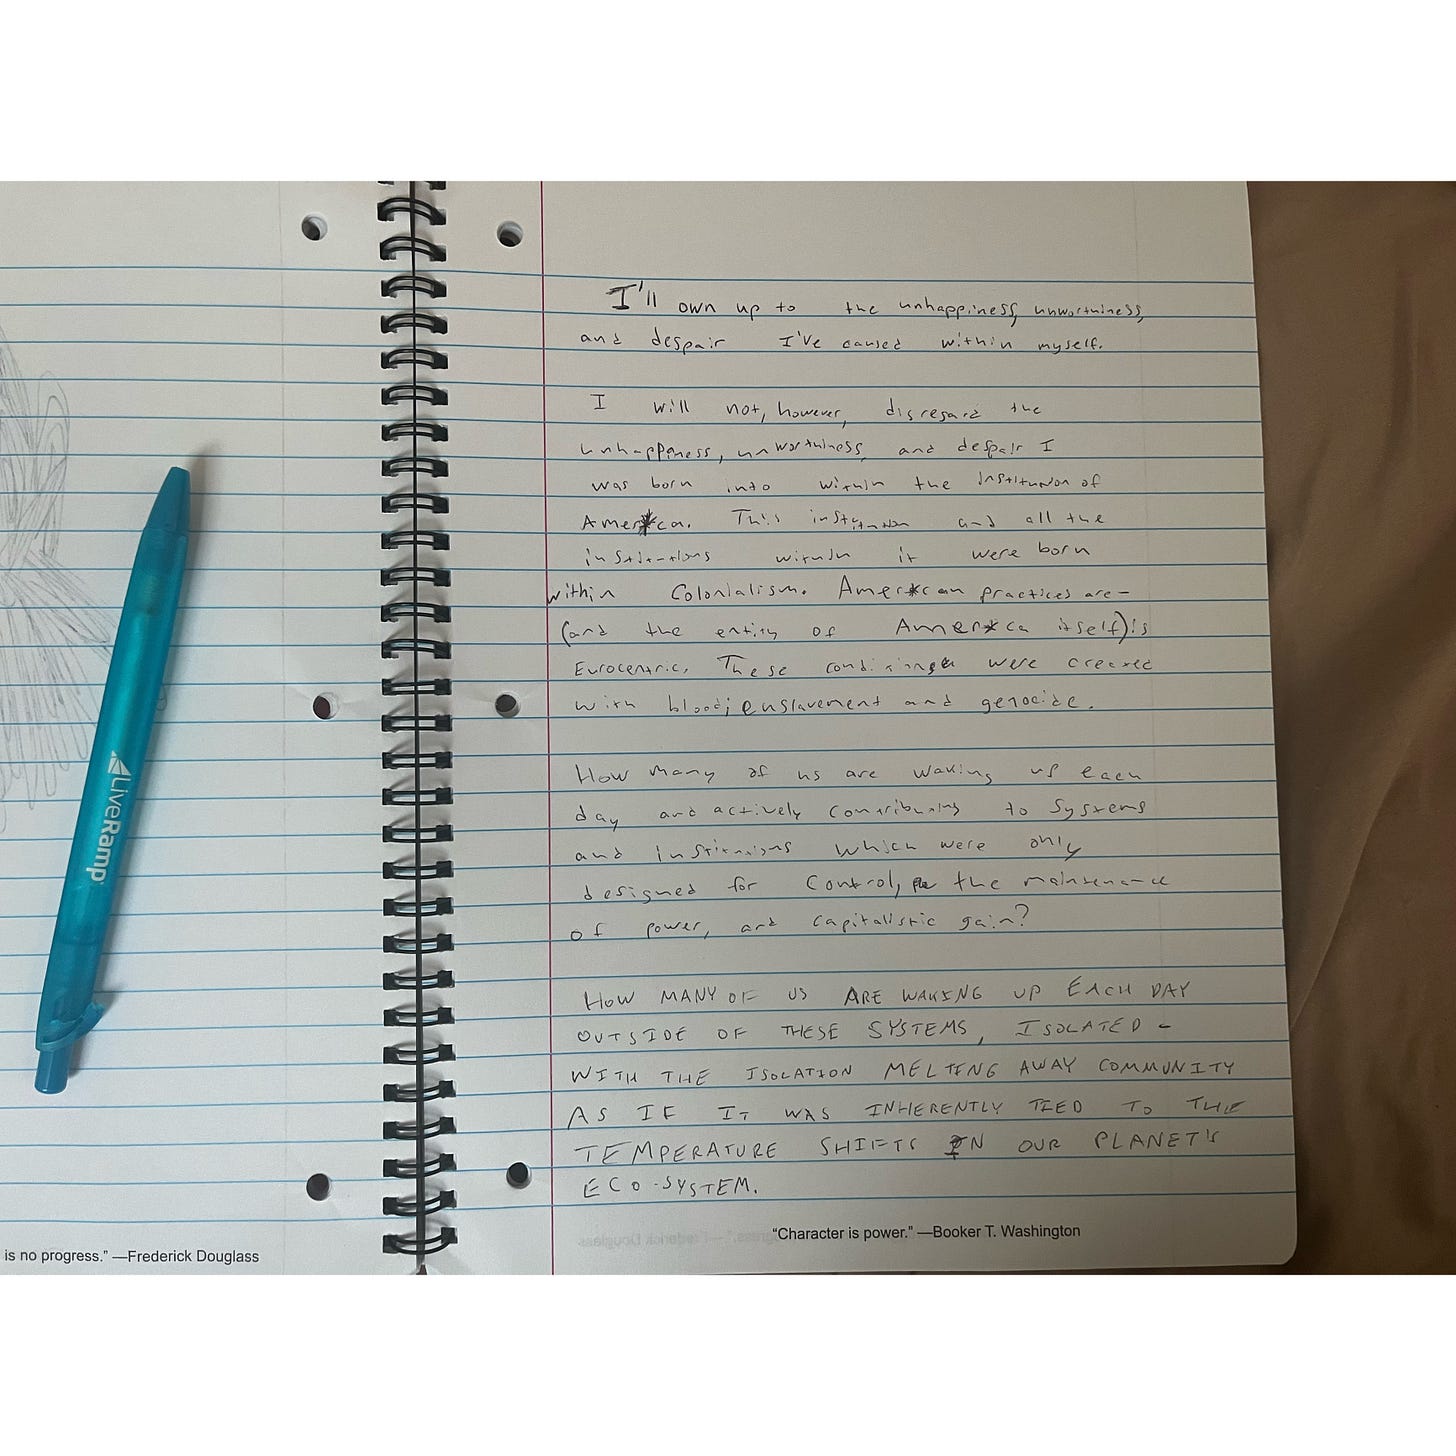 I'll own up to the unhappiness, unworthiness,
and despair I've caused within myself.
I will not, however, disregard the
unhappiness, unworthiness, and despair I
was born into within the institution of
Amer*ca. This institution and all the
institutions within it were born
within Colonialism. Amer*can practices are-
(and the entity of Amer*ca itself) is
Eurocentric. These were created
with blood; enslavement and genocide.
How many of us are waking up each
day and actively contributing to systems
and institutions which were only
designed for control, the maintenance
of power, and capitalistic gain?
HOW MANY OF US ARE WAKING UP EACH DAY
OUTSIDE OF THESE SYSTEMS, ISOLATED -
WITH THE ISOLATION MELTING AWAY COMMUNITY
AS IF IT WAS INHERENTLY TIED TO THE
TEMPERATURE SHIFTS IN OUR PLANET'S
ECO-SYSTEM.
"Character is power." —Booker T. Washington
is no progress." —Frederick Douglass
LiveRamp